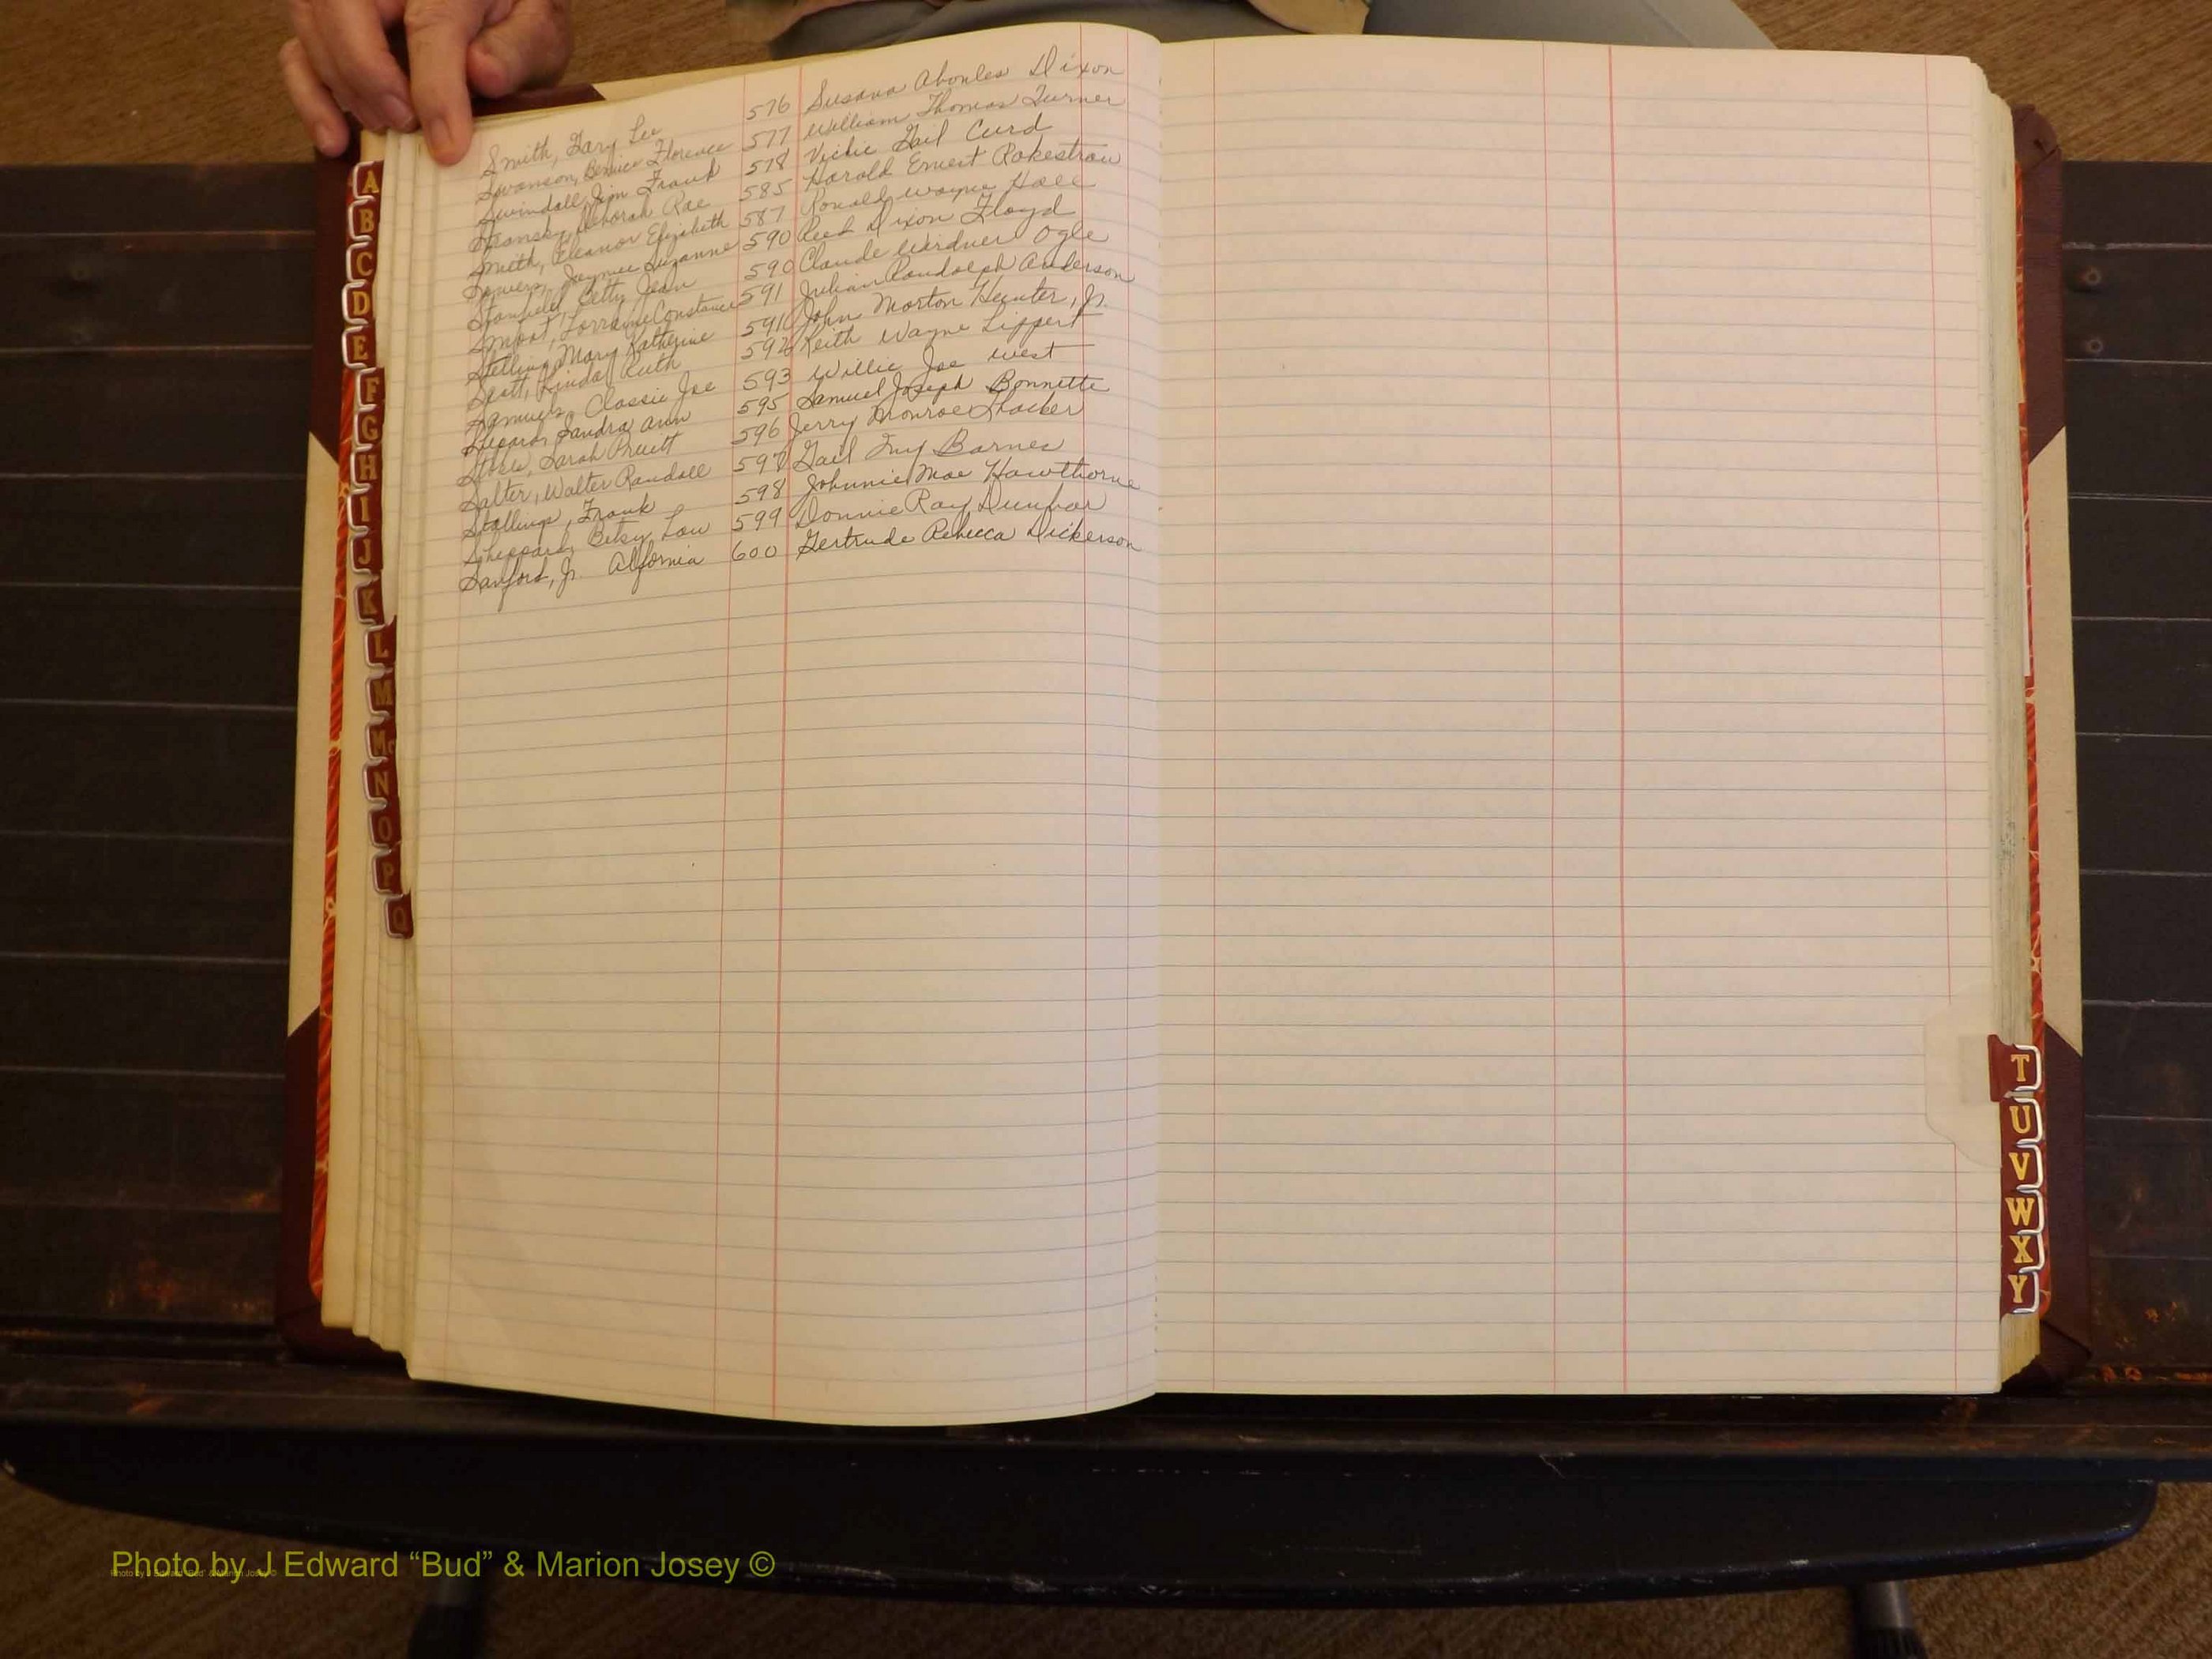 Smith, Gary Lee 576 Susana Dixon
Swanson, Bernice Florence 577 William Thomas Turner
Swindall, Jim Frank 578 Vickie Gail Curd
Deborah Rae 585 Harold Ernest Rakestraw
Smith, Eleanor Elizabeth 587 Ronald Wayne Hall
Sowers, Jaymie Suzanne 590 Reed Dixon Floyd
Stanfield, Betty Jean 590 Claude Gardner Ogle
Smoot, Lorraine Constance 591 Julian Randolph Anderson
Stelling, Mary Katherine 591 John Morton Hunter, Jr.
Scott, Linda Ruth 592 Keith Wayne Lippert
Samuels, Classie Joe 593 Willie Joe West
Sandra Ann 595 Samuel Joseph Bonnette
Sarah Pruitt 596 Jerry Monroe
Salter, Walter Randall 597 Gail Barnes
Stallings, Frank 598 Johnnie Mae Hawthorne
Sheppard, Betsy Lou 599 Donnie Ray Dunbar
Sanford, Jr. Alfornia 600 Gertrude Rebecca Dickerson
A
B
C
D
E
F
G
H
I
J
K
L
M
Mc
N
O
P
Q
T
U
V
W
X
Y
Photo by J Edward “Bud” & Marion Josey ©